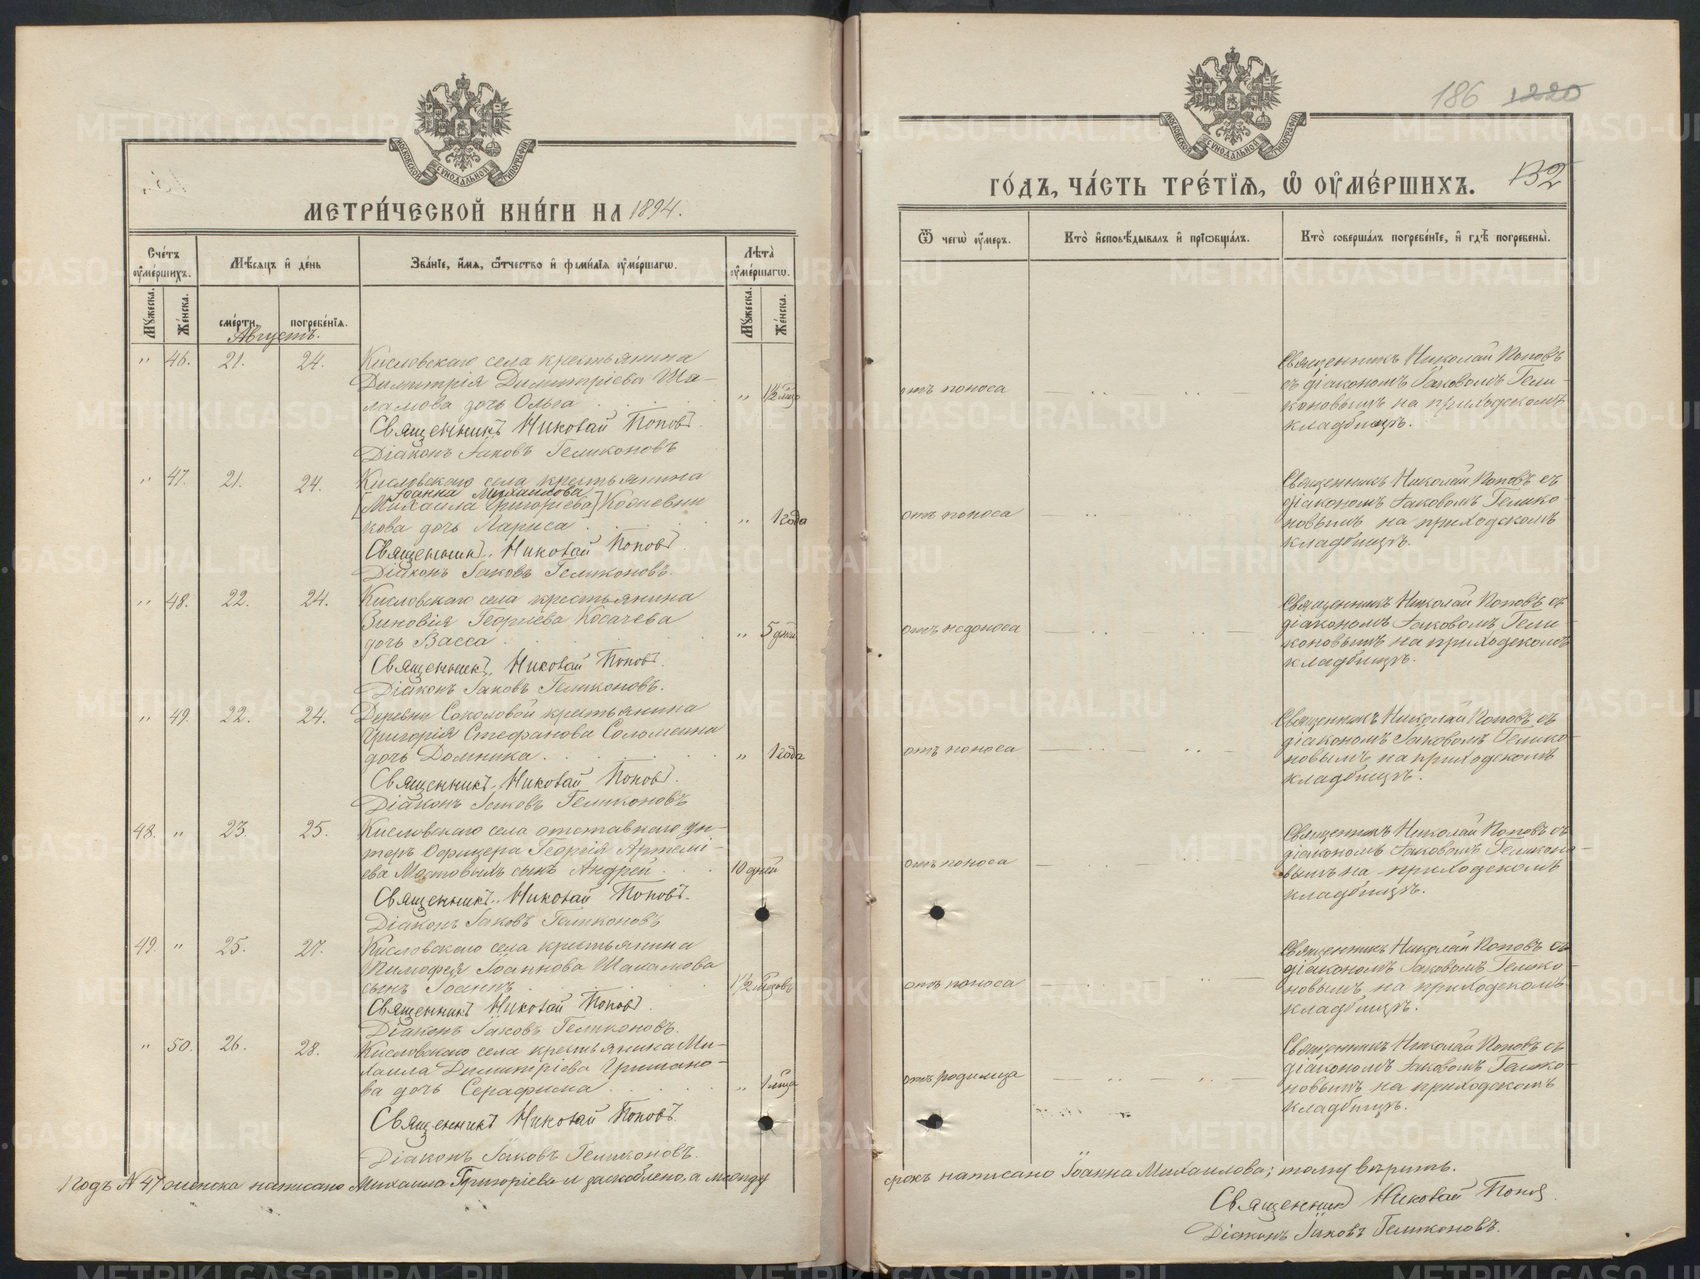 МЕТРИ́ЧЕСКОЙ КНИ́ГИ НА 1894.
Сче́тъ ᲂу҆ме́ршихъ.
Мѣ́сяцъ и҆ де́нь
Зва́нїе, и҆́мя, ѻ҆́тчество и҆ фами́лїя ᲂу҆ме́ршагѡ.
Лѣ́та ᲂу҆ме́ршагѡ.
Мꙋ́жеска.
Же́нска.
сме́рти.
погребе́нїя.
Мꙋ́жеска.
Же́нска.
Августъ.
" 46. 21. 24. Кисловскаго села крестьянина
Димитрія Димитріева Ша-
ламова дочь Ольга " 1½ мѣс.
Священникъ Николай Поповъ.
Діаконъ Іаковъ Геликоновъ
" 47. 21. 24. Кисловскаго села крестьянина
Іоанна Михаилова
[Михаила Григоріева] Кожевни
кова дочь Лариса " 1 года
Священникъ Николай Поповъ
Діаконъ Іаковъ Геликоновъ.
" 48. 22. 24. Кисловскаго села крестьянина
Зиновія Георгіева Косачева
дочь Васса " 5 дній
Священникъ Николай Поповъ.
Діаконъ Іаковъ Геликоновъ.
" 49. 22. 24. Деревни Соколовой крестьянина
Григорія Стефанова Соломеина
дочь Домника " 1 года
Священникъ Николай Поповъ.
Діаконъ Іаковъ Геликоновъ
48. " 23. 25. Кисловскаго села отставнаго ун-
теръ Офицера Георгія Артемі-
ева Мостовыхъ сынъ Андрей 10 дней
Священникъ Николай Поповъ.
Діаконъ Іаковъ Геликоновъ
49. " 25. 27. Кисловскаго села крестьянина
Тимофея Іоаннова Шаламова
сынъ Іоаннъ 1½ мѣсяцовъ
Священникъ Николай Поповъ.
Діаконъ Іаковъ Геликоновъ.
" 50. 26. 28. Кисловскаго села крестьянина Ми-
хаила Димитріева
ва дочь Серафима " 1 мѣс.
Священникъ Николай Поповъ.
Діаконъ Іаковъ Геликоновъ.
Подъ № 47 женска написано Михаила Григоріева и заскоблено, а между
186 1220
132
ГО́ДЪ, ЧА́СТЬ ТРЕ́ТЇЯ, Ѽ ОУ҆МЕ́РШИХЪ.
Ѿ чегѡ̀ ᲂу҆́меръ.
Кто̀ и҆сповѣ́дывалъ и҆ прїѡбща́лъ.
Кто̀ соверша́лъ погребе́нїе, и҆ гдѣ̀ погребены̀.
отъ поноса
Священникъ Николай Поповъ
съ діакономъ Іаковомъ Гели-
коновымъ на приходскомъ
кладбищѣ.
отъ поноса
Священникъ Николай Поповъ съ
діакономъ Іаковомъ Гелико-
новымъ на приходскомъ
кладбищѣ.
отъ недоноса
Священникъ Николай Поповъ съ
діакономъ Іаковомъ Гели-
коновымъ на приходскомъ
кладбищѣ.
отъ поноса
Священникъ Николай Поповъ съ
діакономъ Іаковомъ Гелико-
новымъ на приходскомъ
кладбищѣ.
отъ поноса
Священникъ Николай Поповъ съ
діакономъ Іаковомъ Геликоно-
вымъ на приходскомъ
кладбищѣ.
отъ поноса
Священникъ Николай Поповъ съ
діакономъ Іаковомъ Гелико-
новымъ на приходскомъ
кладбищѣ.
отъ родимца
Священникъ Николай Поповъ съ
діакономъ Іаковомъ Гелико-
новымъ на приходскомъ
кладбищѣ.
срокъ написано Іоанна Михаилова; тому вѣрить.
Священникъ Николай Поповъ.
Діаконъ Іаковъ Геликоновъ
METRIKI.GASO-URAL.RU